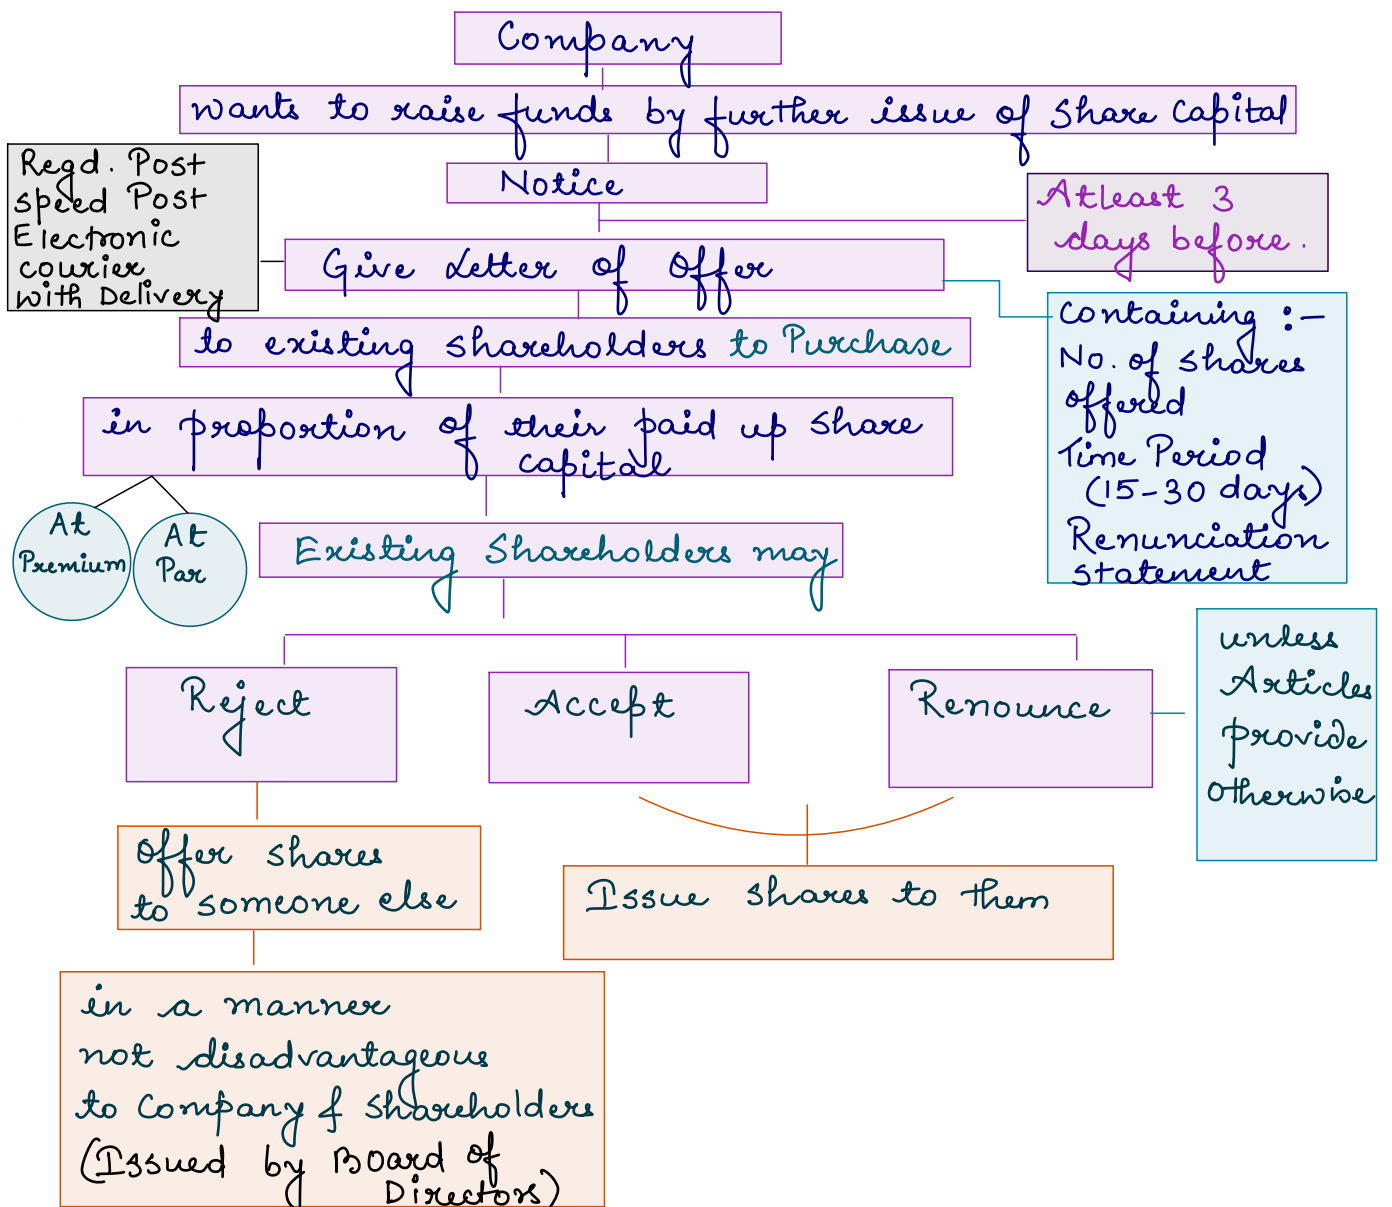 Company
wants to raise funds by further issue of Share Capital
Notice
Regd. Post
speed Post
Electronic
courier
with Delivery
Atleast 3
days before.
Give Letter of Offer
containing :-
No. of shares
offered
Time Period
(15-30 days)
Renunciation
statement
to existing shareholders to Purchase
in proportion of their paid up share
capital
At
Premium
At
Par
Existing Shareholders may
Reject
Accept
Renounce
unless
Articles
provide
otherwise
Offer shares
to someone else
Issue shares to them
in a manner
not disadvantageous
to Company & shareholders
(Issued by Board of
Directors)